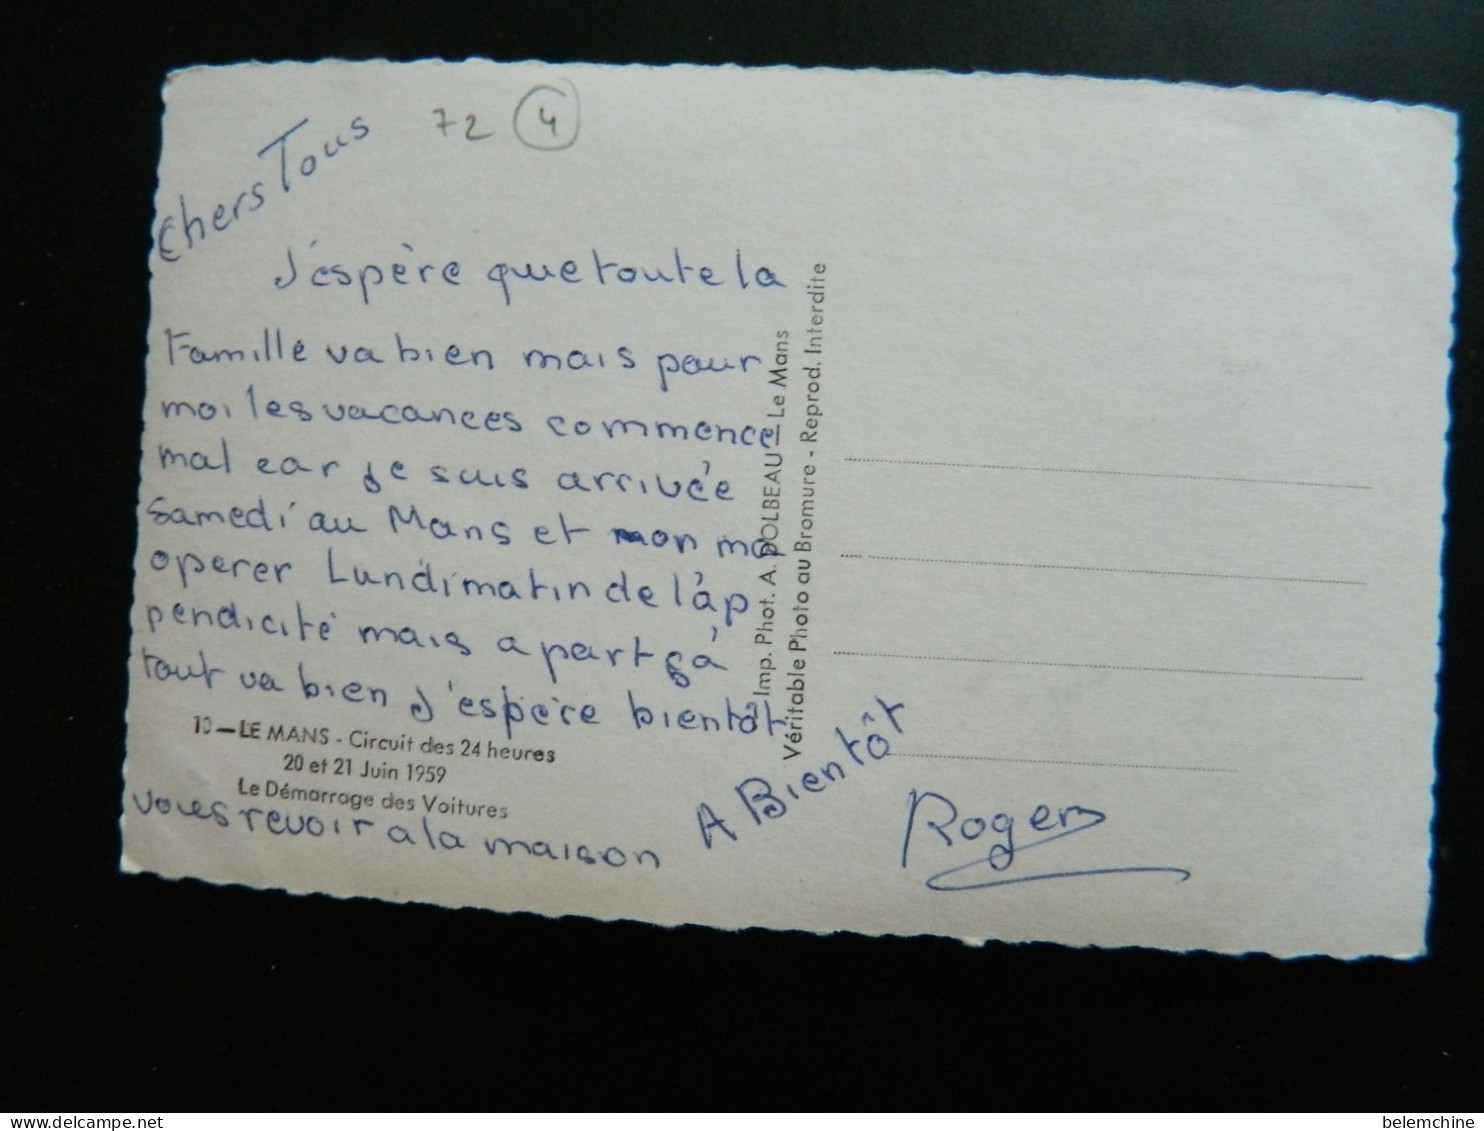 72 4
Chers Tous
J'éspère que toute la
Famille va bien mais pour
moi les vacances commence
mal car je suis arrivée
samedi au Mans et mon ma
operer Lundi matin de l'ap
pendicité mais a part çà
tout va bien J'espère bientôt
10 — LE MANS - Circuit des 24 heures
20 et 21 Juin 1959
Le Démarrage des Voitures
vous revoir a la maison
A Bientôt
Roger
Imp. Phot. A. DOLBEAU — Le Mans
Véritable Photo au Bromure - Reprod. Interdite
delcampe.net
belemchine